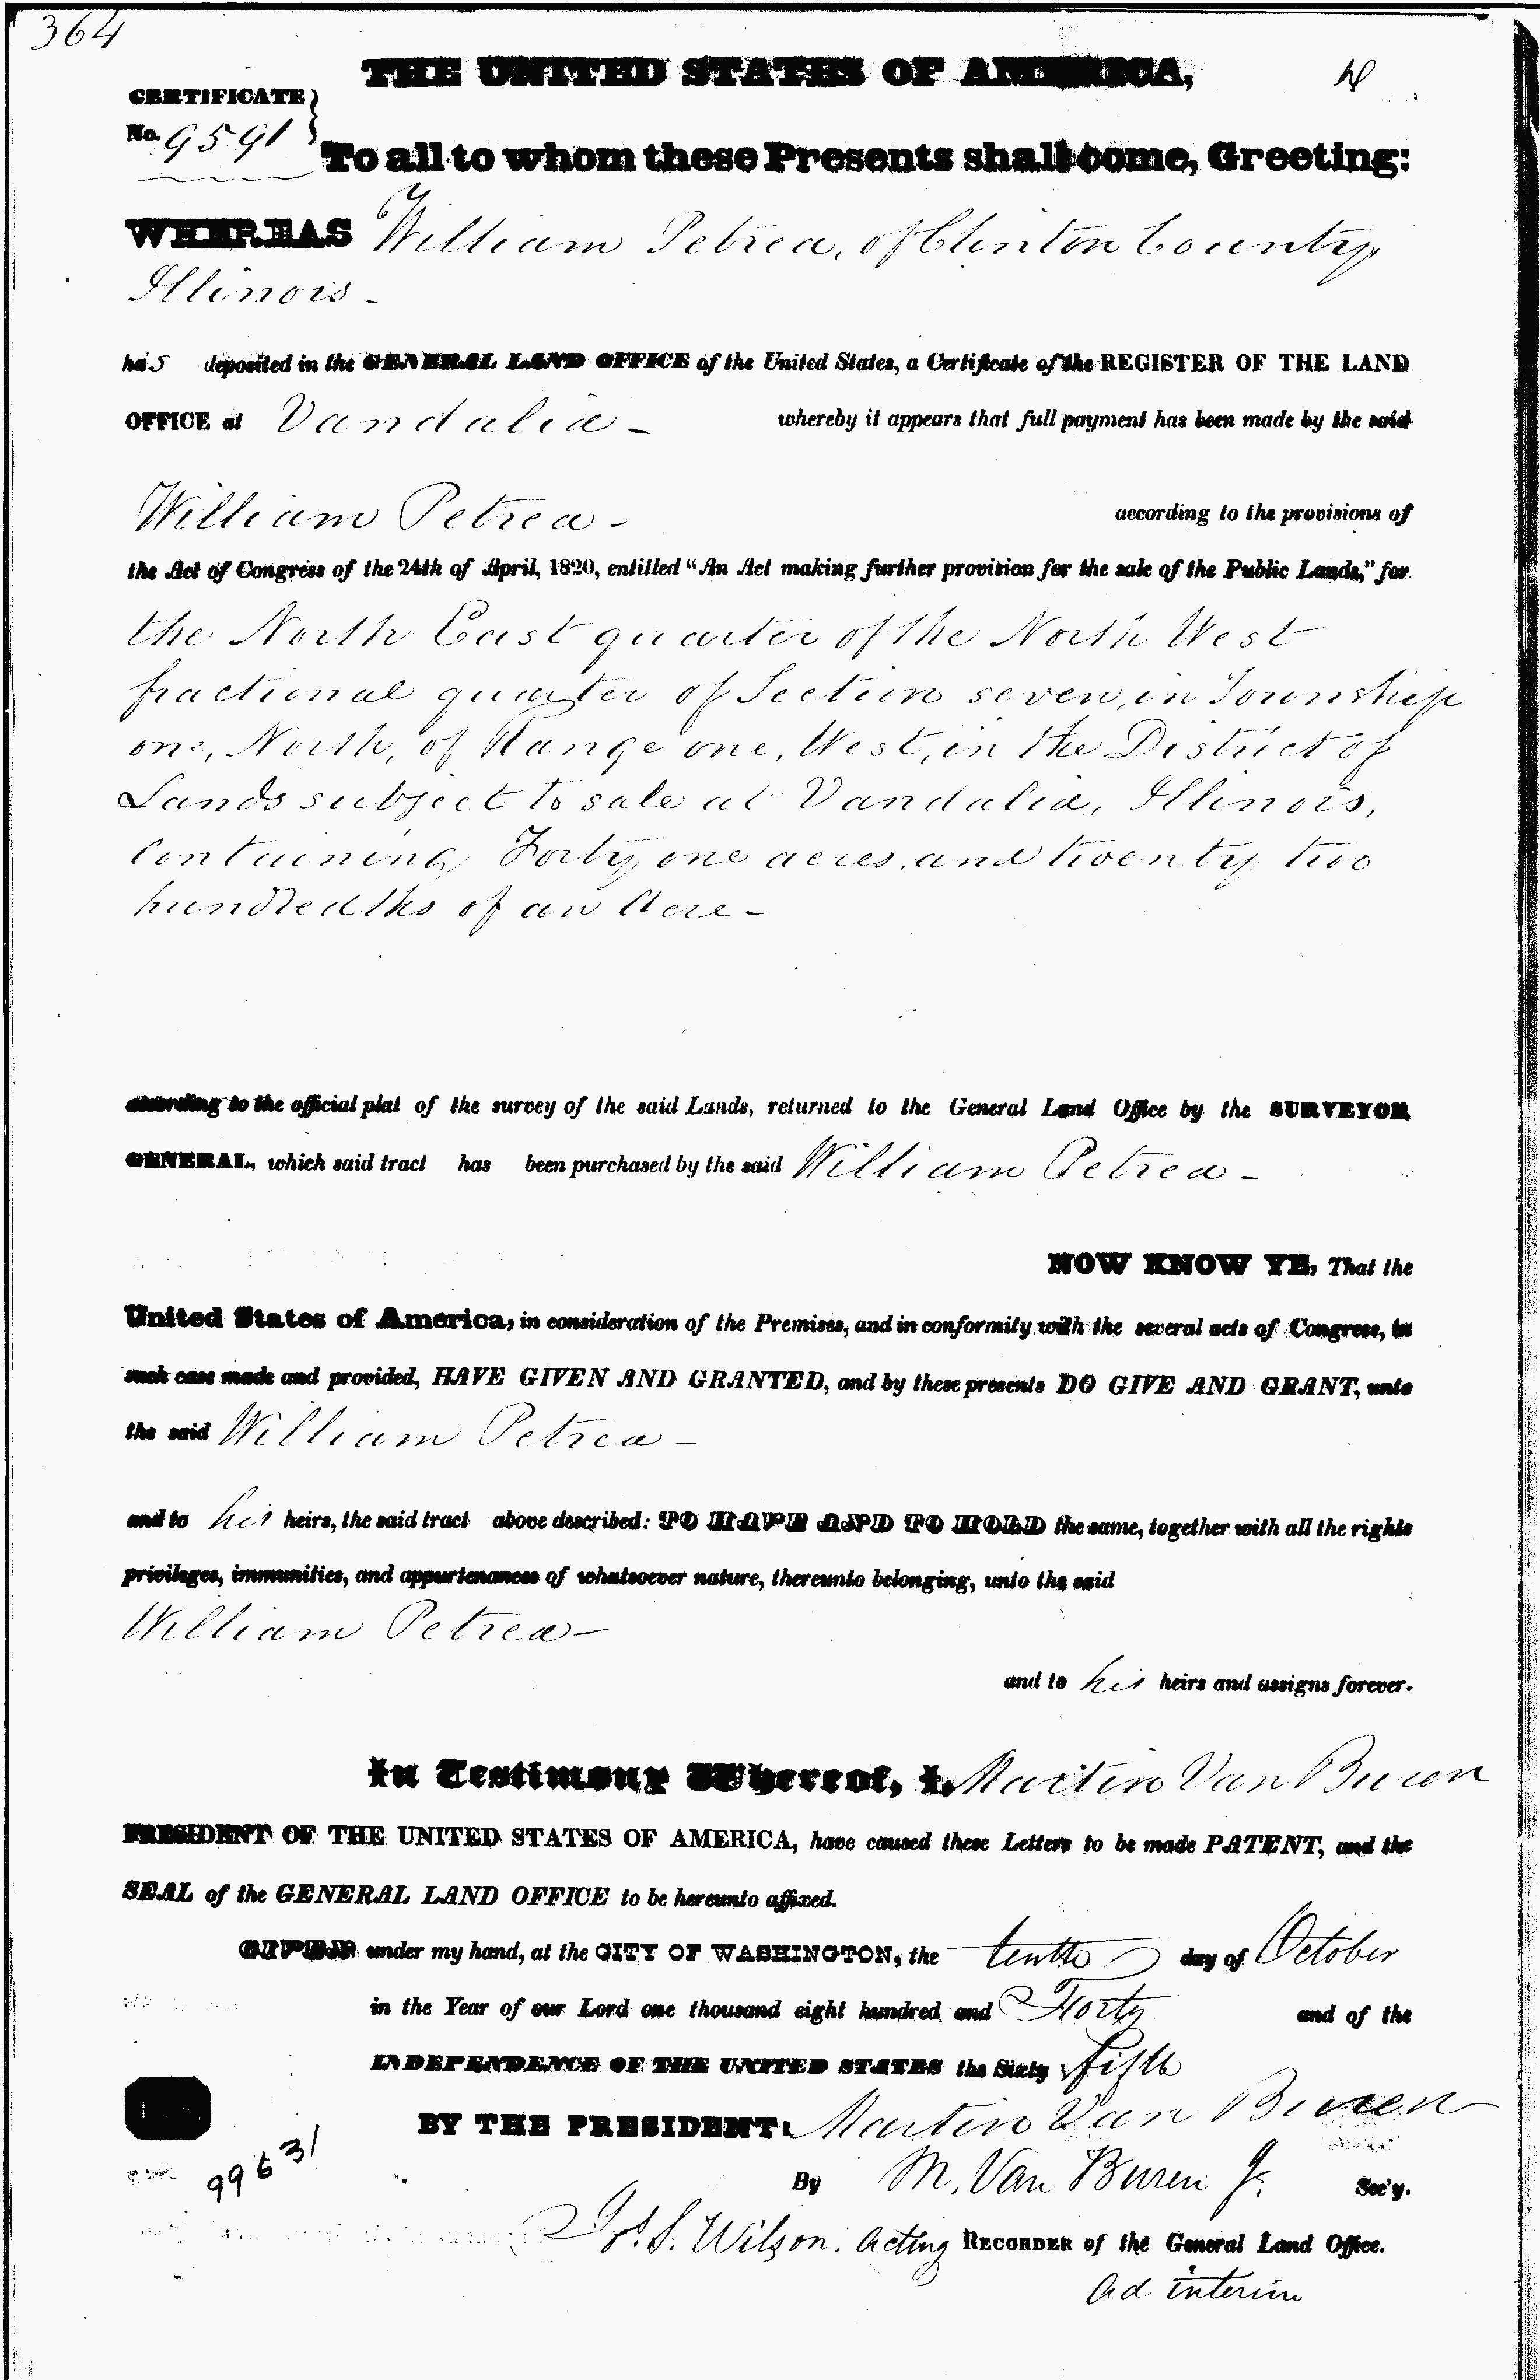 364
THE UNITED STATES OF AMERICA,
CERTIFICATE
No. 9591
To all to whom these Presents shall come, Greeting:
WHEREAS William Petrea, of Clinton County
Illinois -
has deposited in the GENERAL LAND OFFICE of the United States, a Certificate of the REGISTER OF THE LAND
OFFICE at Vandalia - whereby it appears that full payment has been made by the said
William Petrea - according to the provisions of
the Act of Congress of the 24th of April, 1820, entitled "An Act making further provision for the sale of the Public Lands," for
the North East quarter of the North West
fractional quarter of Section seven, in Township
one, North, of Range one, West, in the District of
Lands subject to sale at Vandalia, Illinois,
containing Forty one acres, and twenty two
hundredths of an Acre -
according to the official plat of the survey of the said Lands, returned to the General Land Office by the SURVEYOR
GENERAL, which said tract has been purchased by the said William Petrea -
NOW KNOW YE, That the
United States of America, in consideration of the Premises, and in conformity with the several acts of Congress, in
such case made and provided, HAVE GIVEN AND GRANTED, and by these presents DO GIVE AND GRANT, unto
the said William Petrea -
and to his heirs, the said tract above described: TO HAVE AND TO HOLD the same, together with all the rights
privileges, immunities, and appurtenances of whatsoever nature, thereunto belonging, unto the said
William Petrea -
and to his heirs and assigns forever.
In Testimony Whereof, I, Martin Van Buren
PRESIDENT OF THE UNITED STATES OF AMERICA, have caused these Letters to be made PATENT, and the
SEAL of the GENERAL LAND OFFICE to be hereunto affixed.
GIVEN under my hand, at the CITY OF WASHINGTON, the tenth day of October
in the Year of our Lord one thousand eight hundred and Forty and of the
INDEPENDENCE OF THE UNITED STATES the Sixty fifth
BY THE PRESIDENT: Martin Van Buren
99631
By M. Van Buren Jr. Sec'y.
Jos. S. Wilson. Acting RECORDER of the General Land Office.
Ad interim